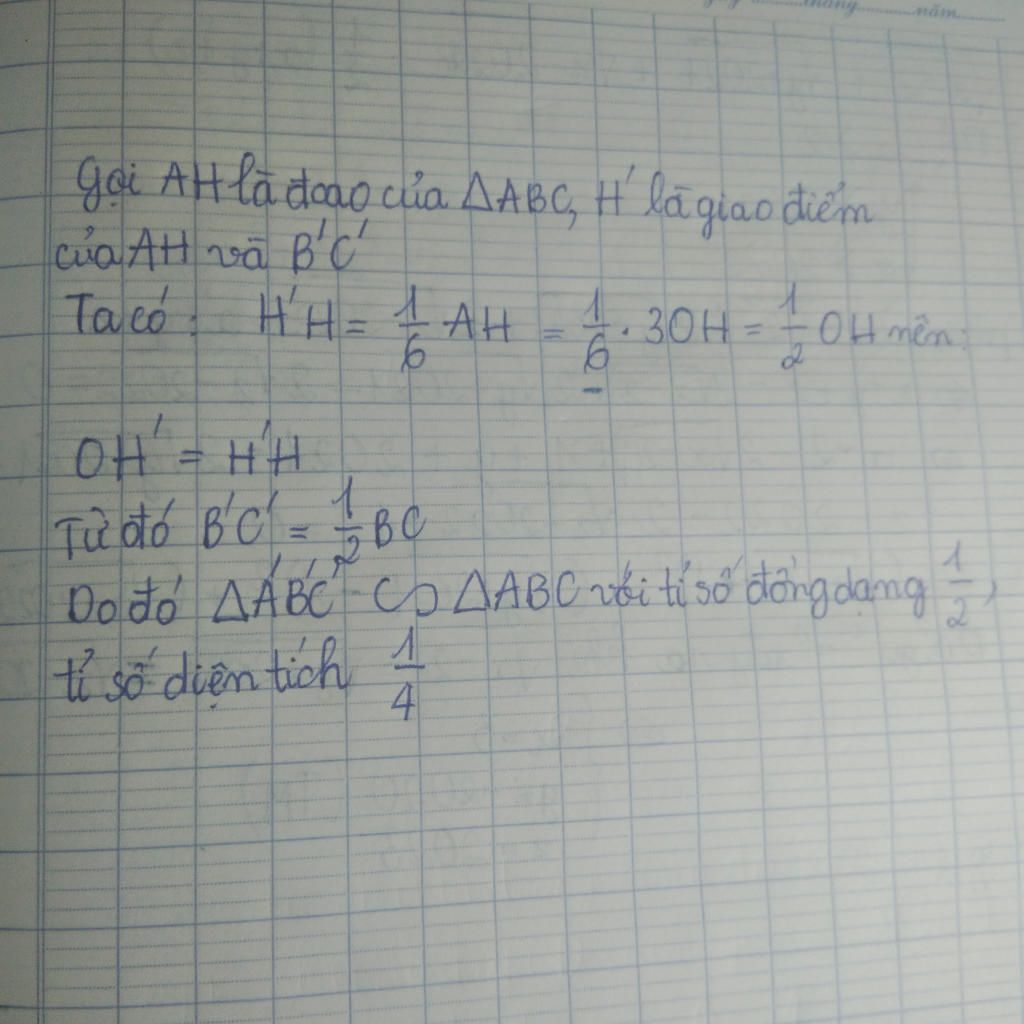 năm
Gọi AH là đcao của ΔABC, H' là giao điểm
của AH và B'C'
Ta có: H'H = 1/6 AH = 1/6 . 3OH = 1/2 OH nên:
OH' = H'H
Từ đó B'C' = 1/2 BC
Do đó ΔA'B'C' ∽ ΔABC với tỉ số đồng dạng 1/2,
tỉ số diện tích 1/4